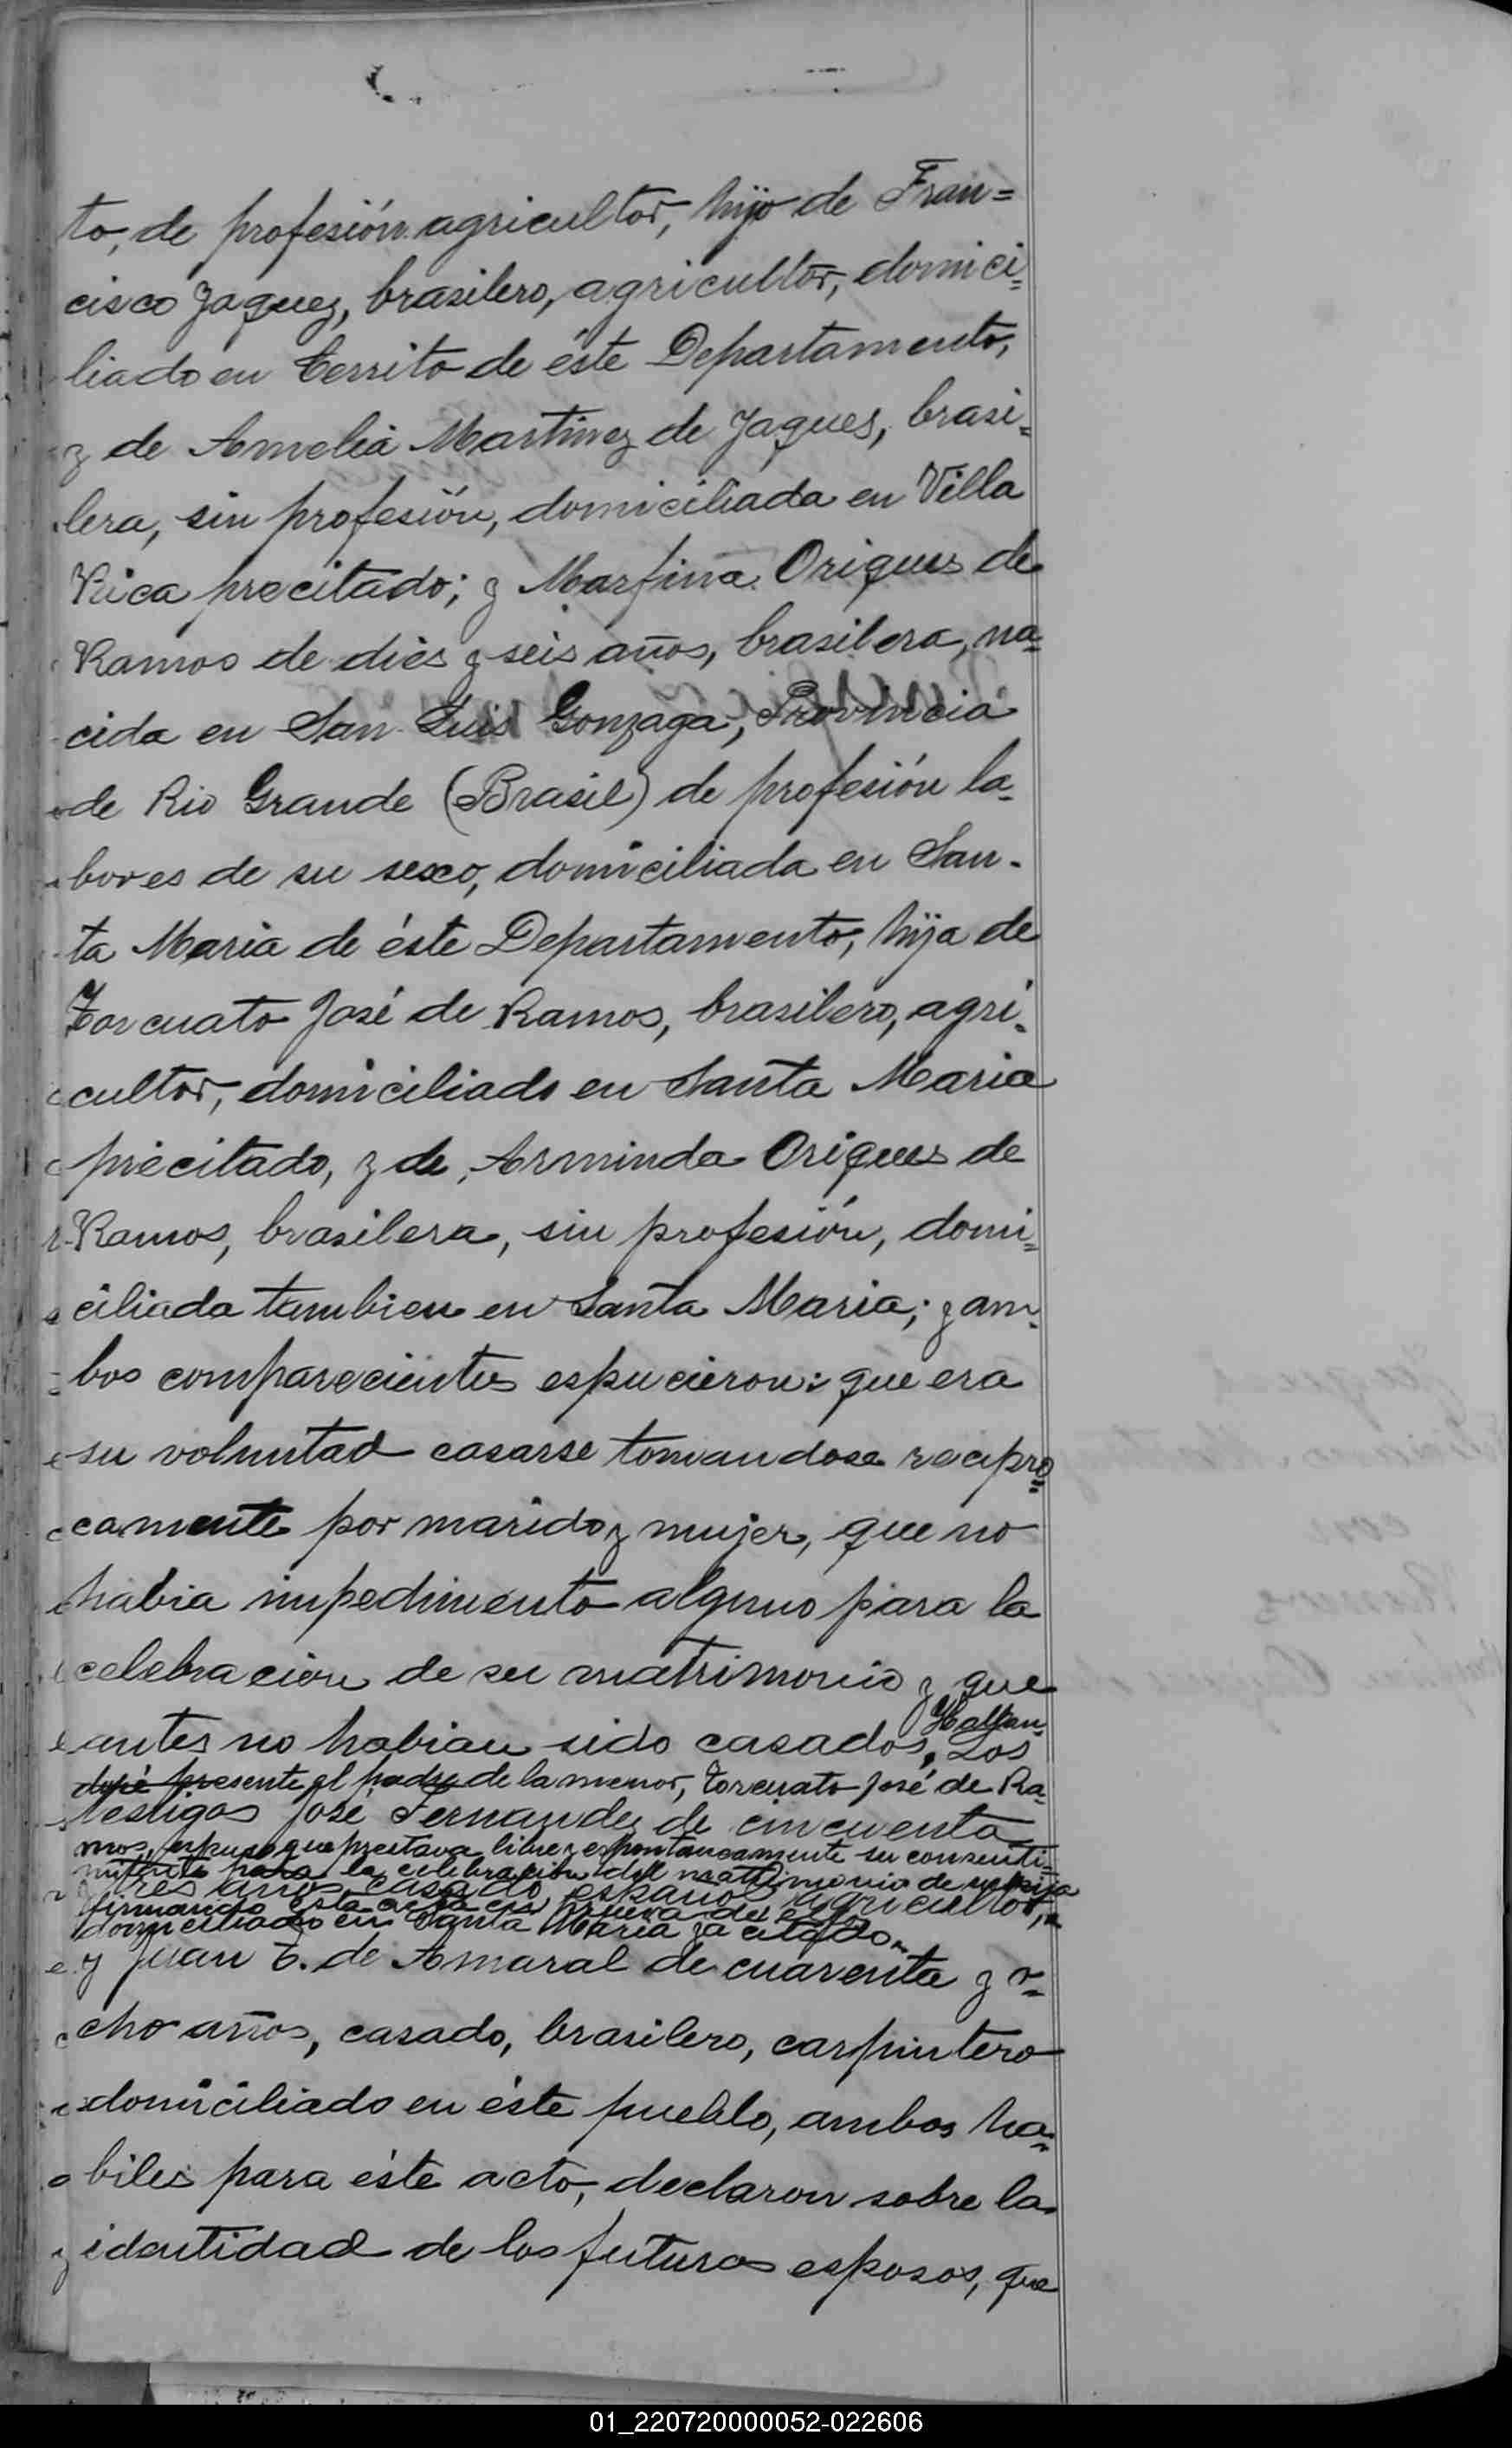 to, de profesión agricultor, hijo de Fran=
cisco Jaquez, brasilero, agricultor, domici=
liado en Cerrito de éste Departamento,
y de Amelia Martinez de Jaques, brasi=
lera, sin profesión, domiciliada en Villa
Rica precitado; y Marfina Origues de
Ramos de diés y seis años, brasilera, na=
cida en San Luis Gonzaga, Provincia
de Rio Grande (Brasil) de profesión la=
bores de su sexo, domiciliada en San-
ta Maria de éste Departamento, hija de
Torcuato José de Ramos, brasilero, agri=
cultor, domiciliado en Santa Maria
precitado, y de, Arminda Origues de
Ramos, brasilera, sin profesión, domi=
ciliada tambien en Santa Maria; y am=
bos comparecientes espucieron: que era
su voluntad casarse tomandose recipro=
camente por marido y mujer, que no
habia impedimento alguno para la
celebracion de su matrimonio y que
antes no habian sido casados, Los
Hallan=
dose presente el padre de la menor, Torcuato José de Ra=
testigos José Fernandez de cincuenta
mos, espuso que prestava libre y espontaneamente su consenti=
miento para la celebración del matrimonio de su hija
y tres años, casado, español, agricultor,
firmando esta acta en prueva de ello
domiciliado en Santa Maria ya citado
y Juan T. de Amaral de cuarenta y o=
cho años, casado, brasilero, carpintero
domiciliado en éste pueblo, ambos ha=
biles para éste acto, declaron sobre la
identidad de los futuros esposos, que
01_220720000052-022606